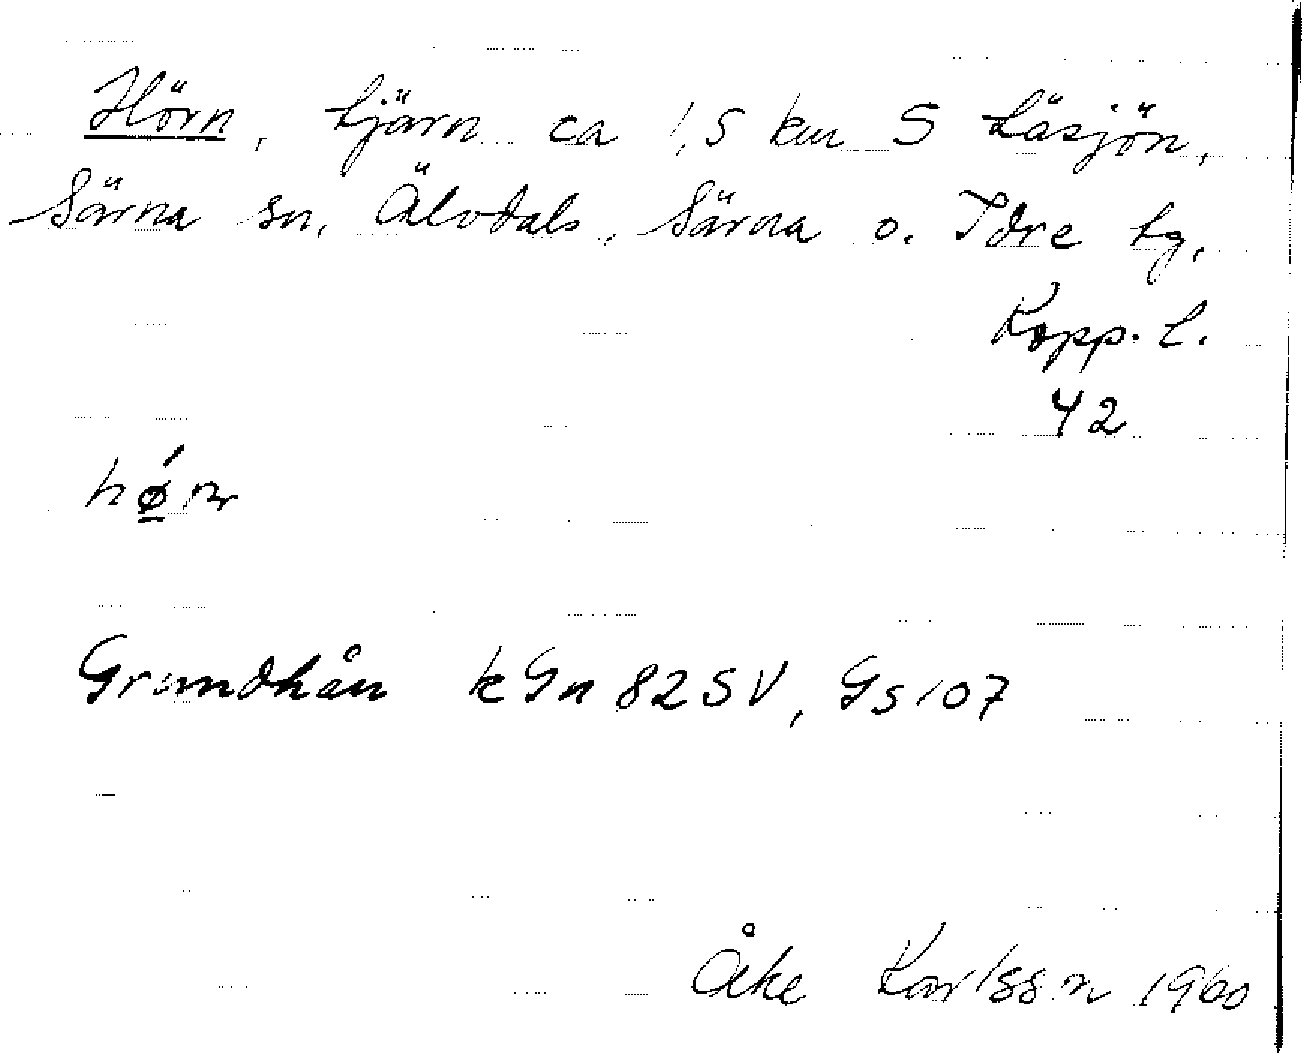 Hörn, tjärn ca 1,5 km S Läsjön,
Särna sn, Älvdals, Särna o. Idre tg,
Kopp. l.
42
Grundhån kGn 82SV, Gs107
Åke Karlsson 1960